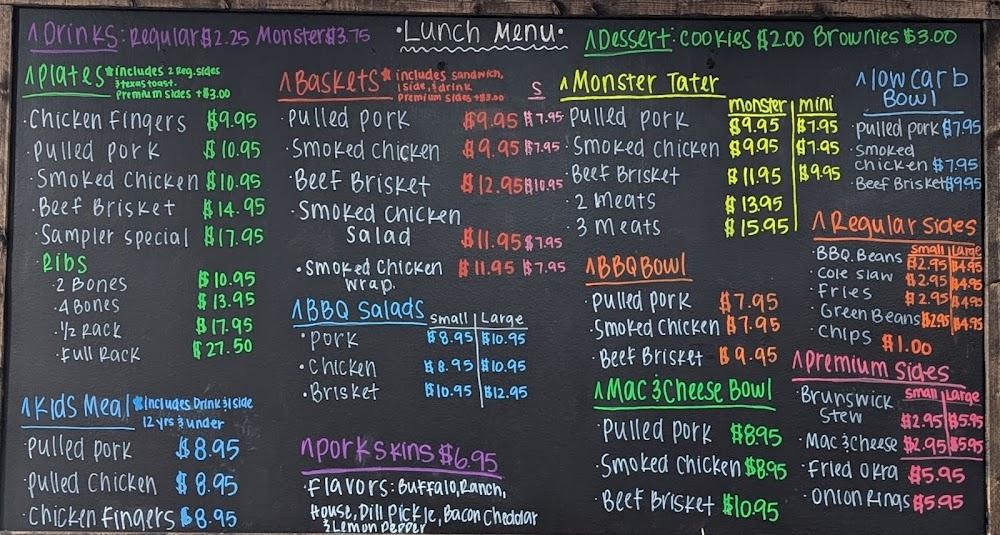 ^Drinks: Regular $2.25 Monster $3.75
·Lunch Menu·
^Dessert: Cookies $2.00 Brownies $3.00
^Plates *includes 2 Reg. sides
& texas toast.
Premium Sides +$3.00
·Chicken Fingers $9.95
·Pulled Pork $10.95
·Smoked Chicken $10.95
·Beef Brisket $14.95
·Sampler Special $17.95
·Ribs
·2 Bones $10.95
·4 Bones $13.95
·1/2 Rack $17.95
·Full Rack $27.50
^Kids Meal *includes Drink & side
12 yrs & under
·Pulled Pork $8.95
·Pulled Chicken $8.95
·Chicken Fingers $8.95
^Baskets *includes sandwich,
1 side, & drink
Premium Sides +$3.00
S
·Pulled Pork $9.95 $7.95
·Smoked Chicken $9.95 $7.95
·Beef Brisket $12.95 $10.95
·Smoked Chicken
Salad $11.95 $7.95
·Smoked Chicken $11.95 $7.95
Wrap.
^BBQ Salads Small Large
·Pork $8.95 $10.95
·Chicken $8.95 $10.95
·Brisket $10.95 $12.95
^Pork Skins $6.95
·Flavors: Buffalo, Ranch,
House, Dill Pickle, Bacon Cheddar
& Lemon Pepper
^Monster Tater
Monster Mini
·Pulled Pork $9.95 $7.95
·Smoked Chicken $9.95 $7.95
·Beef Brisket $11.95 $9.95
·2 Meats $13.95
·3 Meats $15.95
^BBQ Bowl
·Pulled Pork $7.95
·Smoked Chicken $7.95
·Beef Brisket $9.95
^Mac & Cheese Bowl
·Pulled Pork $8.95
·Smoked Chicken $8.95
·Beef Brisket $10.95
^Low Carb
Bowl
·Pulled Pork $7.95
·Smoked
Chicken $7.95
·Beef Brisket $9.95
^Regular Sides
Small Large
·BBQ Beans $2.95 $4.95
·Cole Slaw $2.95 $4.95
·Fries $2.95 $4.95
·Green Beans $2.95 $4.95
·Chips $1.00
^Premium Sides
Small Large
·Brunswick
Stew $2.95 $5.95
·Mac & Cheese $2.95 $5.95
·Fried Okra $5.95
·Onion Rings $5.95